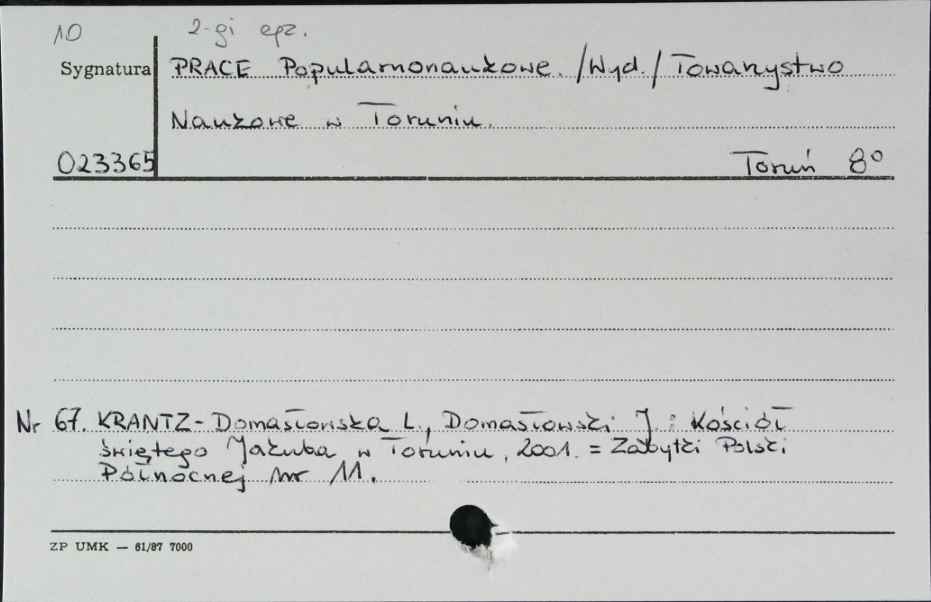 10 2-gi egz.
Sygnatura PRACE Popularnonaukowe. /Wyd./ Towarzystwo
Naukowe w Toruniu.
023365 Toruń 8°
Nr 67. KRANTZ-Domasłowska L., Domasłowski J. : Kościół
świętego Jakuba w Toruniu, 2001. = Zabytki Polski
Północnej nr 11.
ZP UMK — 61/87 7000